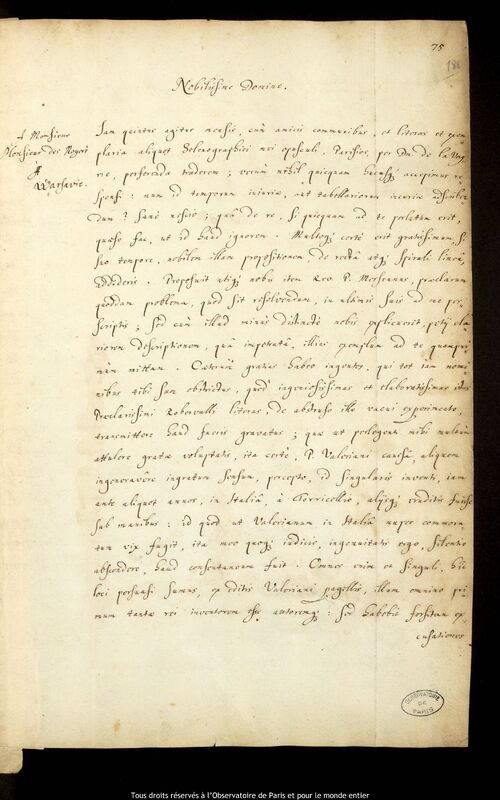 75
188
Nobilissime Domine.
A Monsieur
Monsieur des Noyers
A
Warsavie.
Iam quintus agitur mensis, cùm amicis communibus, et literas et exem
plaria aliquot Selenographici mei opusculi, Parisios, per Dn. de la
rie, perferenda traderem; verùm nihil quicquam hactenus accepimus re
sponsi: num id temporum iniuriae, aut tabellariorum incuriae adscriben
dum? Sanè nescio; quâ de re, si quicquam ad te perlatum erit,
quaeso fac, ut id haud ignorem. Multoq; certè erit gratissimum, si
suo tempore, nobilem illam propositionem de rectâ atq; spirali lineâ,
addideris. Proposuit utiq; nobis item Rev. P. Mersennus, praeclarum
quoddam problema, quod sit resolvendum, in ultimis suis ad me per
scriptis; sed cùm illud minùs distinctè nobis explicuerit, petij cla
riorem descriptionem, quâ impetratâ, illius exemplum ad te quampri
mùm mittam. Caeterùm gratias habeo ingentes, qui tot iam nomi
nibus tibi sum obstrictus, quod ingeniosissimas et elaboratissimas illas
Praeclarissimi Robervalli literas, de abstruso illo vacui experimento,
transmittere haud fueris gravatus; quae ut perlegenti mihi multum
attulere gratae voluptatis, ita certè, P. Valeriani causâ, aliquem
ingeneravêre ingratum sensum, percepto, id singularis inventi, iam
ante aliquot annos, in Italiâ, à Torricellio, alijsq; eruditis fuisse
sub manibus: id quod ut Valerianum in Italiâ nuper commora
tum vix fugit, ita meo quoq; iudicio, ingenuitatis ergo, silentio
abscondere, haud consentaneum fuit. Omnes enim et singuli, hîc
loci persuasi sumus, ex editis Valeriani pagellis, illum omnino pri
mum tantae rei inventorem esse autoremq;: sed habebit forsitan ex
cusationes
OBSERVATOIRE
DE
PARIS
Tous droits réservés à l'Observatoire de Paris et pour le monde entier